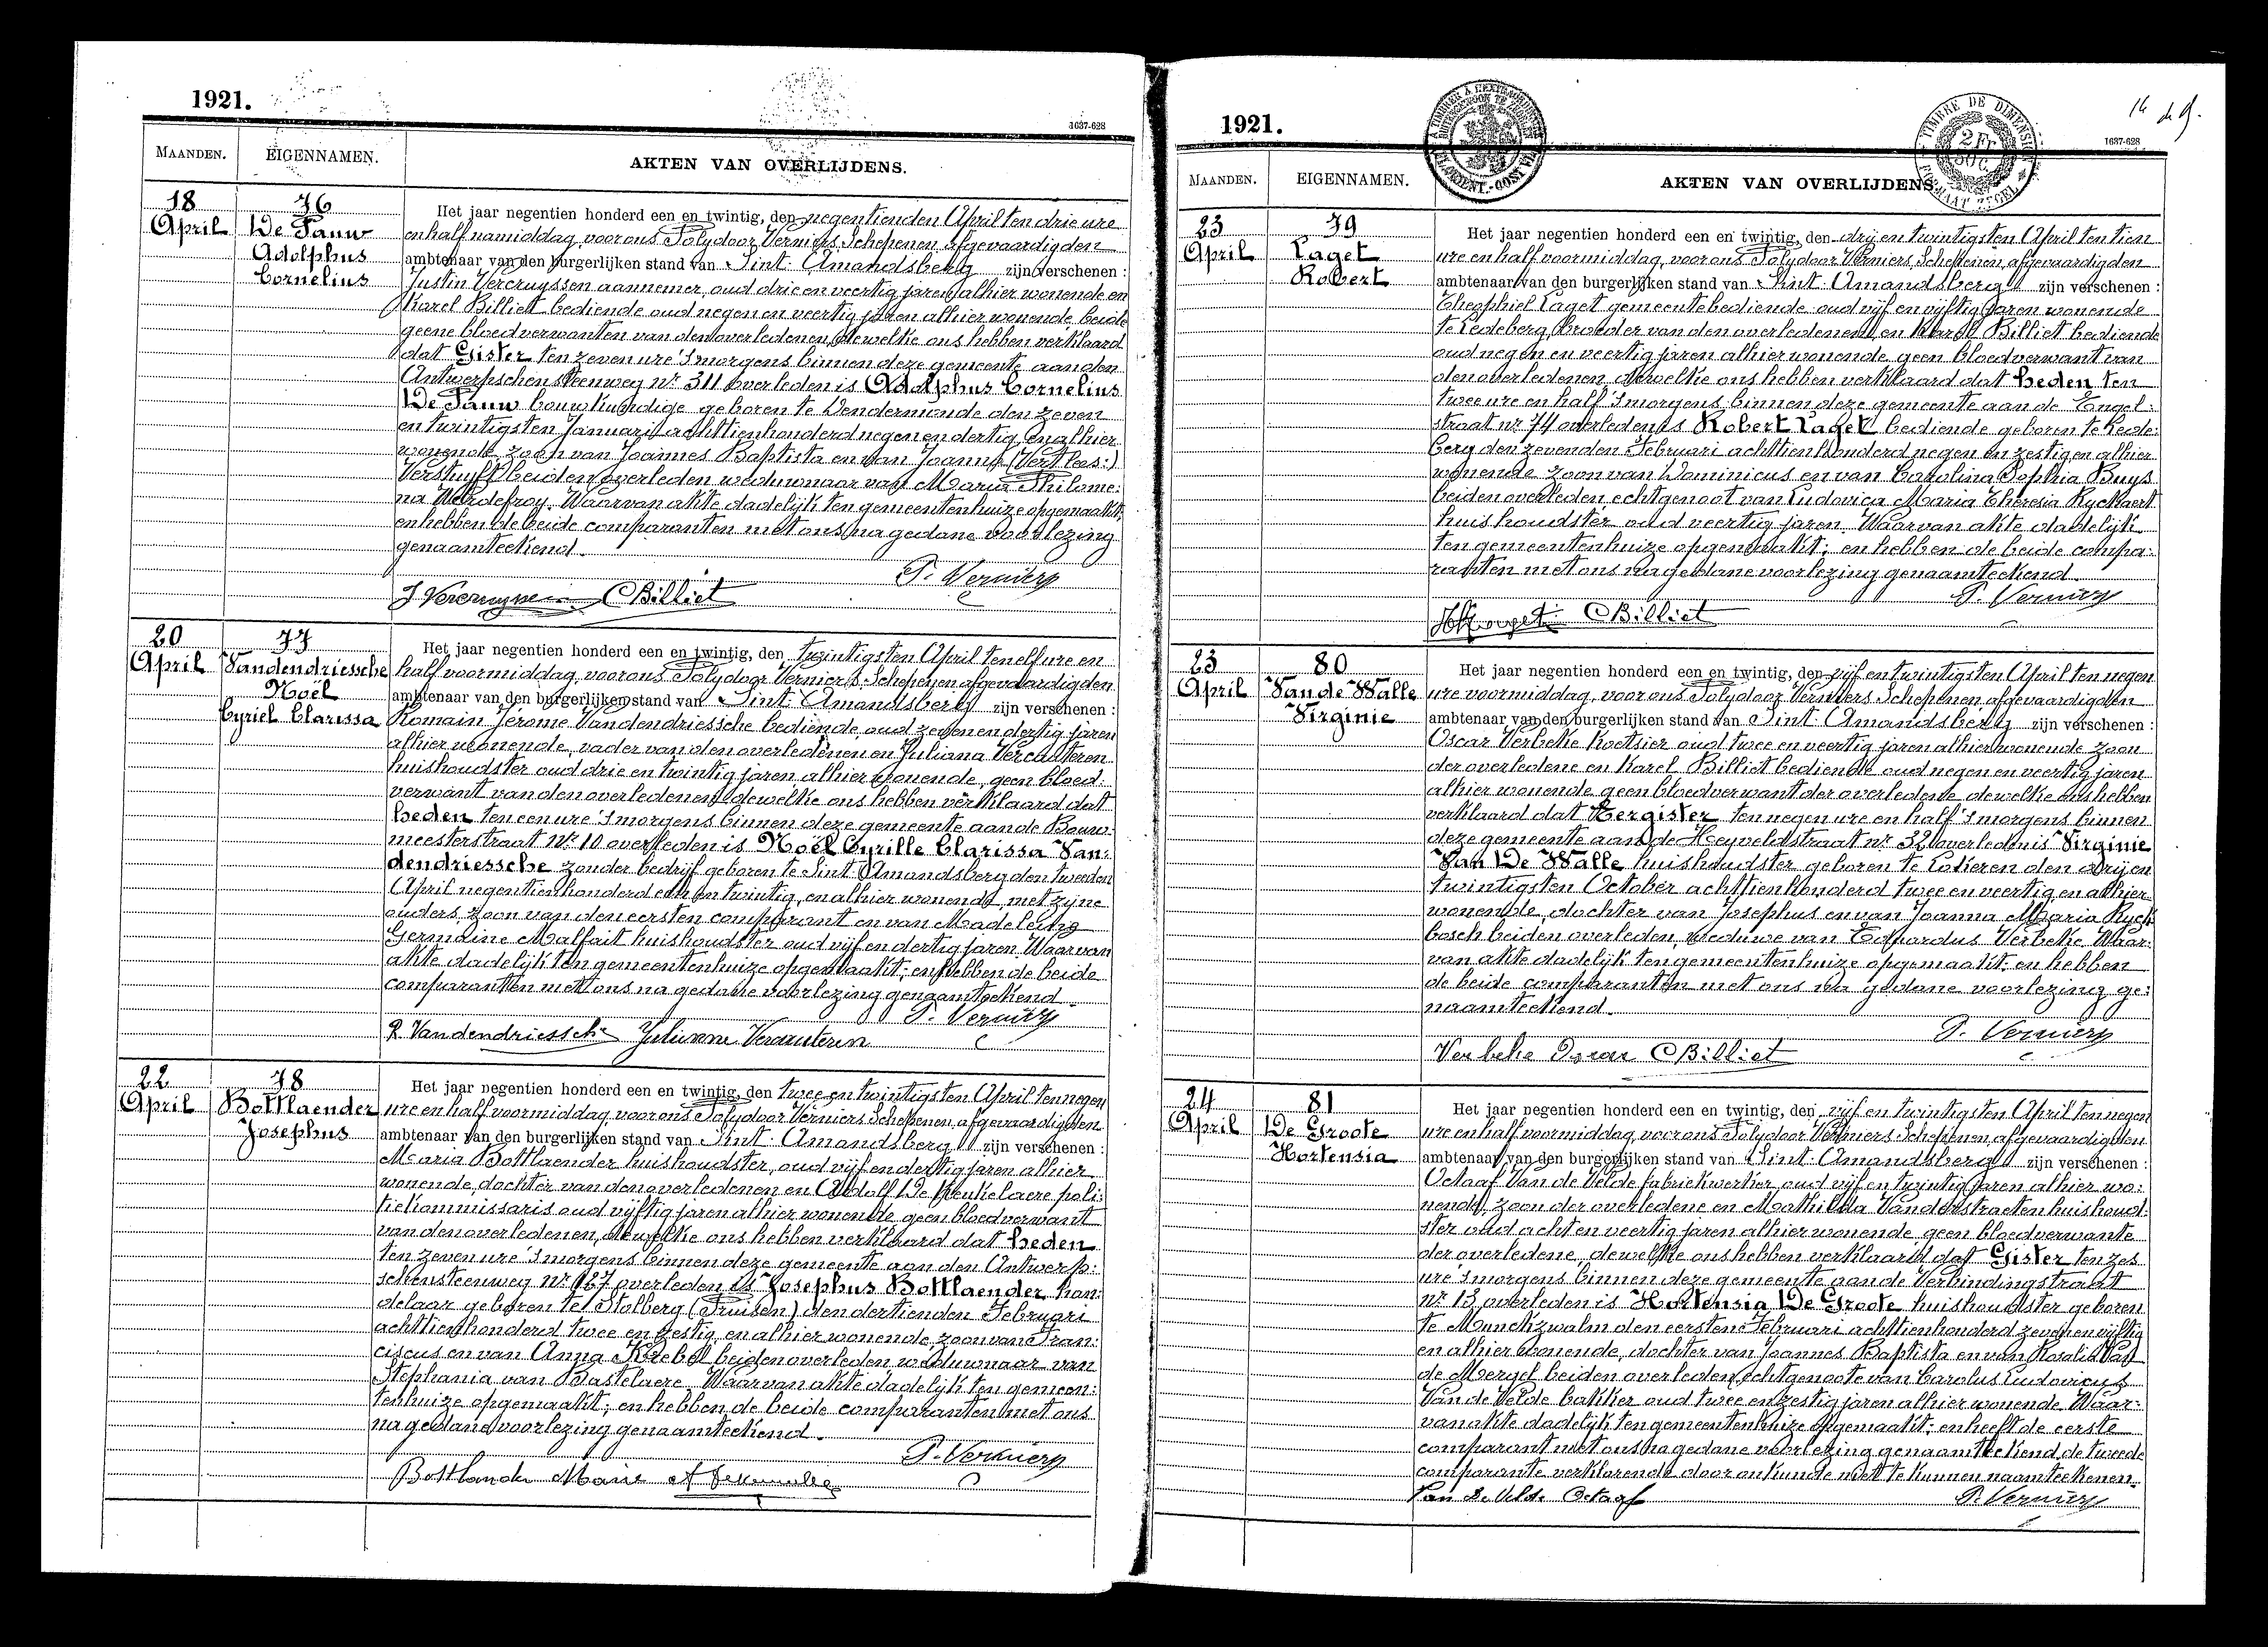 1921.
1637-628
MAANDEN.
EIGENNAMEN.
AKTEN VAN OVERLIJDENS.
18
April
76
De Pauw
Adolphus
Cornelius
Het jaar negentien honderd een en twintig, den negentienden April ten drie ure
en half namiddag, voor ons Polydoor Verniers Schepenen, afgevaardigden
ambtenaar van den burgerlijken stand van Sint-Amandsberg zijn verschenen :
Justin Vercruyssen aannemer, oud drie en veertig jaren alhier wonende en
Karel Billiet bediende oud negen en veertig jaren alhier wonende beide
geene bloedverwanten van den overledenen, dewelke ons hebben verklaard
dat Gister ten zeven ure 's morgens binnen deze gemeente aan den
Antwerpschen steenweg nr 311 overleden is Adolphus Cornelius
De Pauw bouwkundige geboren te Dendermonde den zeven
en twintigsten Januari achttienhonderd negen en dertig, en alhier
wonende, zoon van Joannes Baptista en van Joanna (Vertlees:)
Verstuyft beiden overleden weduwnaar van Maria Philome:
na Werdefroy. Waarvan akte dadelijk ten gemeentenhuize opgemaakt;
en hebben de beide comparanten met ons na gedane voorlezing
genaamteekend.
P. Verniers
J Vercruyssen CBilliet
20
April
77
Vandendriessche
Noël
Cyriel Clarissa
Het jaar negentien honderd een en twintig, den twintigsten April ten elf ure en
half voormiddag, voor ons Polydoor Verniers Schepenen afgevaardigden
ambtenaar van den burgerlijken stand van Sint-Amandsberg zijn verschenen :
Romain Jerome Vandendriessche bediende oud zeven en dertig jaren
alhier wonende, vader van den overledenen en Juliana Vercauteren
huishoudster oud drie en twintig jaren alhier wonende, geen bloed:
verwant van den overledenen, dewelke ons hebben verklaard dat
heden ten een ure 's morgens binnen deze gemeente aan de Bouw:
meesterstraat nr 10 overleden is Noël Cyrille Clarissa Van:
dendriessche zonder bedrijf geboren te Sint-Amandsberg den tweeden
April negentienhonderd een en twintig, en alhier wonende, met zijne
ouders, zoon van den eersten comparant en van Madeleine
Germaine Malfait huishoudster oud vijf en dertig jaren. Waarvan
akte dadelijk ten gemeentenhuize opgemaakt; en hebben de beide
comparanten met ons na gedane voorlezing genaamteekend.
P. Verniers
R Vandendriessche Julienne Vercauteren
22
April
78
Bottlaender
Josephus
Het jaar negentien honderd een en twintig, den twee en twintigsten April ten negen
ure en half voormiddag voor ons Polydoor Verniers Schepenen, afgevaardigden
ambtenaar van den burgerlijken stand van Sint-Amandsberg zijn verschenen :
Maria Bottlaender huishoudster, oud vijf en dertig jaren alhier
wonende, dochter van den overledenen en Adolf De Keukelaere poli:
tiekommissaris oud vijftig jaren alhier wonende geen bloedverwant
van den overledenen, dewelke ons hebben verklaard dat heden
ten zeven ure 's morgens binnen deze gemeente aan den Antwerp:
schensteenweg nr 187 overleden is Josephus Bottlaender han:
delaar geboren te Stolberg (Pruisen) den dertienden Februari
achttienhonderd twee en zestig, en alhier wonende, zoon van Fran:
ciscus en van Anna Krebel beiden overleden weduwnaar van
Stephania van Bastelaere. Waarvan akte dadelijk ten gemeen:
tenhuize opgemaakt; en hebben de beide comparanten met ons
na gedane voorlezing genaamteekend.
P. Verniers
Bottlander Marie
1921.
1637-628
MAANDEN.
EIGENNAMEN.
AKTEN VAN OVERLIJDENS.
TIMBRE DE DIMENSION
2 Fr
23
April
79
Laget
Robert
Het jaar negentien honderd een en twintig, den drij en twintigsten April ten tien
ure en half voormiddag, voor ons Polydoor Verniers, Schepenen, afgevaardigden
ambtenaar van den burgerlijken stand van Sint-Amandsberg zijn verschenen :
Theophiel Laget gemeentebediende oud vijf en vijftig jaren wonende
te Ledeberg, broeder van den overledenen, en Karel Billiet bediende
oud negen en veertig jaren alhier wonende geen bloedverwant van
den overledenen, dewelke ons hebben verklaard dat heden ten
twee ure en half 's morgens binnen deze gemeente aan de Engel:
straat nr 74 overleden is Robert Laget bediende geboren te Lede:
berg den zevenden Februari achttienhonderd negen en zestig en alhier
wonende zoon van Dominicus en van Carolina Sophia Buys
beiden overleden echtgenoot van Ludovica Maria Theresia Ryckaert
huishoudster oud veertig jaren. Waarvan akte dadelijk
ten gemeentenhuize opgemaakt; en hebben de beide compa:
ranten met ons na gedane voorlezing genaamteekend.
P. Verniers
CBilliet
23
April
80
Van de Walle
Virginie
Het jaar negentien honderd een en twintig, den vijf en twintigsten April ten negen
ure voormiddag, voor ons Polydoor Verniers Schepenen, afgevaardigden
ambtenaar van den burgerlijken stand van Sint-Amandsberg zijn verschenen :
Oscar Verbeke koetsier oud twee en veertig jaren alhier wonende zoon
der overledene en Karel Billiet bediende oud negen en veertig jaren
alhier wonende geen bloedverwant der overledene dewelke ons hebben
verklaard dat Eergister ten negen ure en half 's morgens binnen
deze gemeente aan de Heyveldstraat nr 32 overleden is Virginie
Van De Walle huishoudster geboren te Lokeren den drij en
twintigsten October achttienhonderd twee en veertig en alhier
wonende, dochter van Josephus en van Joanna Maria Ryck
bosch beiden overleden, weduwe van Eduardus Verbeke. Waar:
van akte dadelijk ten gemeentenhuize opgemaakt; en hebben
de beide comparanten met ons na gedane voorlezing ge:
naamteekend.
P. Verniers
Verbeke Oscar CBilliet
24
April
81
De Groote
Hortensia
Het jaar negentien honderd een en twintig, den vijf en twintigsten April ten negen
ure en half voormiddag, voor ons Polydoor Verniers Schepenen, afgevaardigden
ambtenaar van den burgerlijken stand van Sint-Amandsberg zijn verschenen :
Octaaf Van de Velde fabriekwerker oud vijf en twintig jaren alhier wo:
nende, zoon der overledene en Mathilda Vanderstraeten huishoud:
ster oud acht en veertig jaren alhier wonende geen bloedverwante
der overledene, dewelke ons hebben verklaard dat Gister ten zes
ure 's morgens binnen deze gemeente aan de Verbindingstraat
nr 13 overleden is Hortensia De Groote huishoudster geboren
te Munckzwalm den eersten Februari achttienhonderd zeven en vijftig
en alhier wonende, dochter van Joannes Baptista en van Rosalie Van
de Mergel beiden overleden, echtgenoote van Carolus Ludovicus
Van de Velde bakker oud twee en zestig jaren alhier wonende. Waar:
van akte dadelijk ten gemeentenhuize opgemaakt; en heeft de eerste
comparant met ons na gedane voorlezing genaamteekend, de tweede
comparante verklarende door onkunde niet te kunnen naamteekenen.
Van De Velde Octaaf
P. Verniers